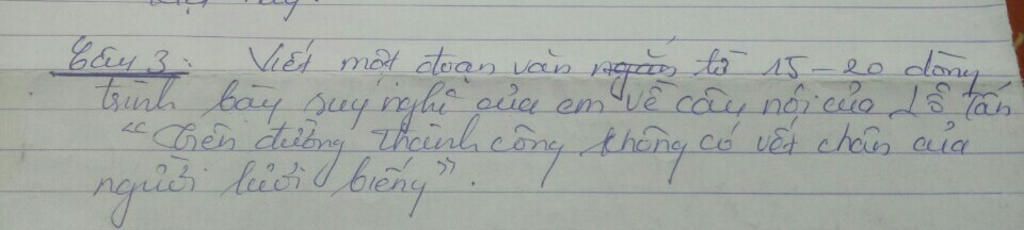 Câu 3: Viết một đoạn văn ngắn từ 15-20 dòng
trình bày suy nghĩ của em về câu nói của Lỗ Tấn
"Trên đường thành công không có vết chân của
người lười biếng".